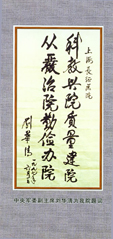 上海長征医院
科教兴院质量建院
从嚴治院勤俭办院
劉華清
中央军委副主席刘华清为我院题词